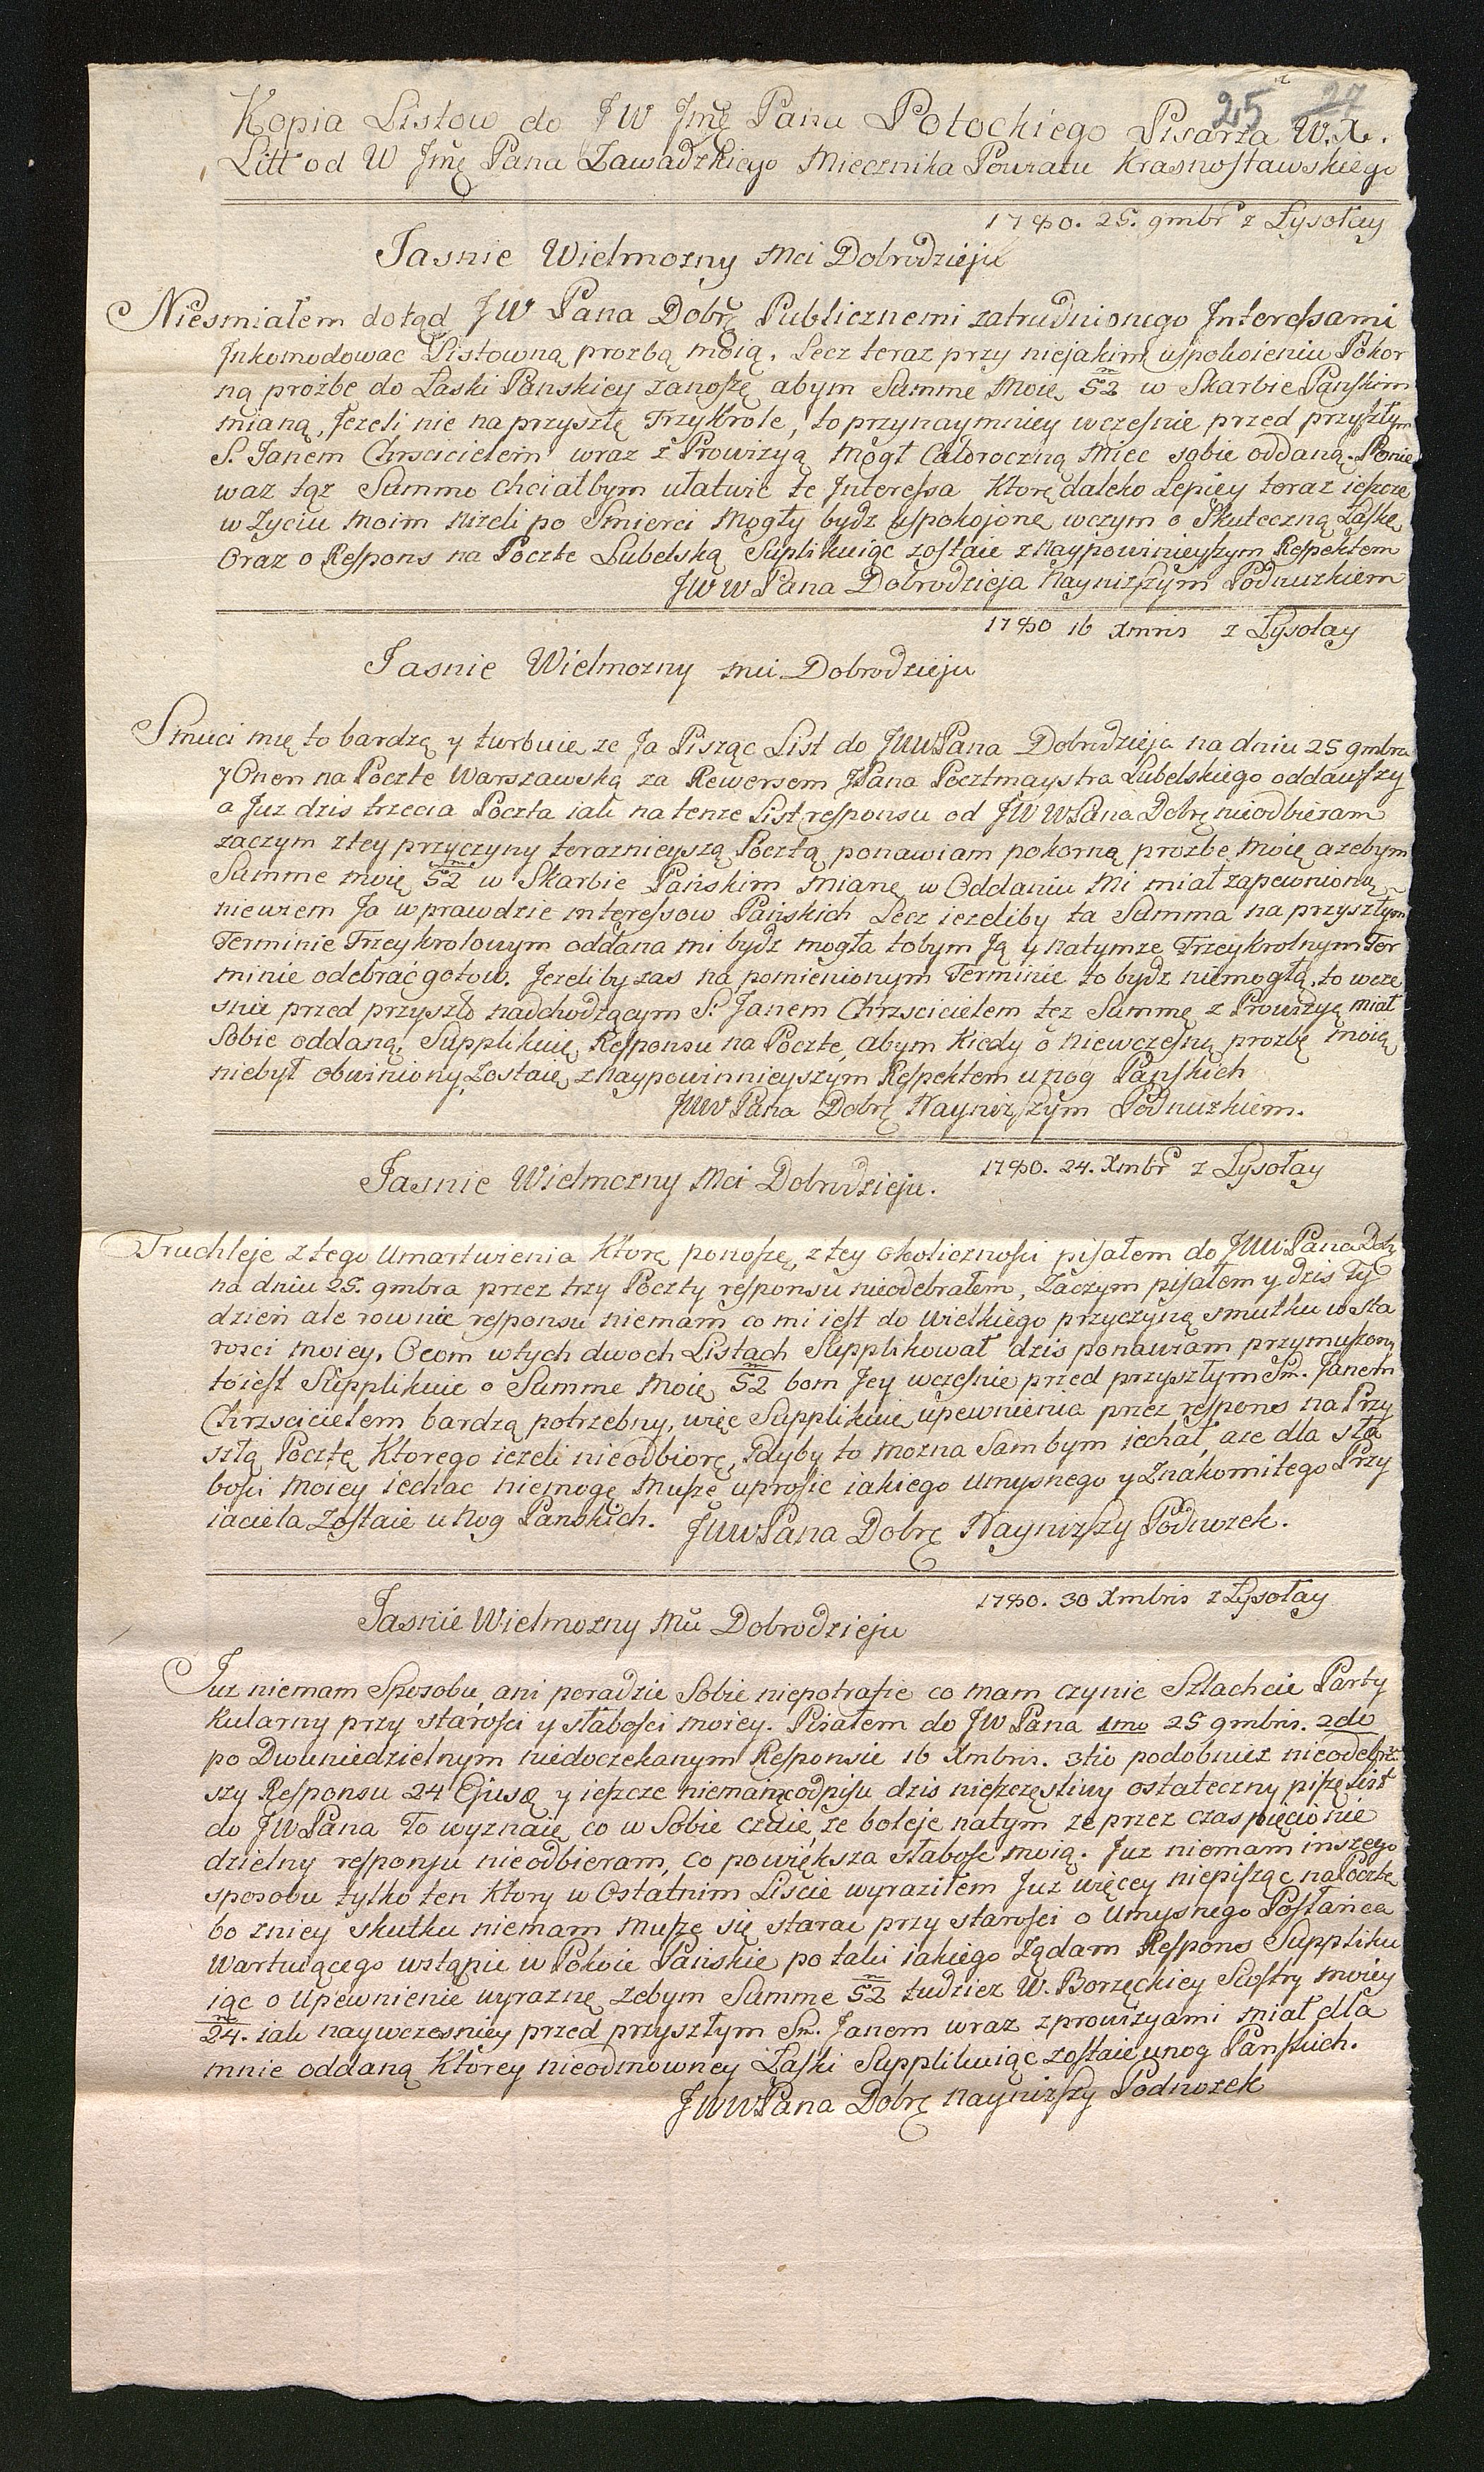 25 27
Kopia Listow do JW Jmę Pana Potockiego Pisarza W. X.
Litt od W Jmę Pana Zawadzkiego Miecznika Powiatu Krasnostawskiego
1780. 25. 9mbr z Łysołay
Jasnie Wielmozny Mci Dobrodzieju
Niesmiałem dotąd JW Pana Dobrę Publicznemi zatrudnionego Interessami
Inkomodowac Listowną prozbą moią. Lecz teraz przy niejakim uspokoieniu Pokor
ną proźbę do Łaski Panskiey zanoszę abym Summe Moię 52 w Skarbie Panskim
mianą, Jezeli nie na przyszłę Trzykrole, to przynaymniey wczesnie przed przyszłym
S. Janem Chrscicielem wraz z Prowizyą mogł Całoroczną Miec sobie oddaną. Ponie
waz tąz Summo chciałbym ułatwic te Interessa Ktorę daleko Lepiey teraz ieszcze
w Zyciu Moim nizeli po Smierci Mogły bydz uspokojonę wczym o Skuteczną Łaskę
Oraz o Respons na Poczte Lubelską Suplikuiąc zostaie z Naypowinieyszym Respektem
JWWPana Dobrodzieja Naynizszym Podnuzkiem
1780 16 Xmris z Łysołay
Jasnie Wielmozny Mci Dobrodzieju
Smuci mię to bardzę y turbuie ze Ja Pisząc List do JWWPana Dobrodzieja na dniu 25 9mbra
y Onen na Poczte Warszawską za Rewersem JPana Pocztmaystra Lubelskiego oddawszy
a Juz dzis trzecia Poczta iak na tenze List responsu od JWWPana Dobrę nieodbieram
zaczym z tey przyczyny teraznieyszą Pocztą ponawiam pokorną prozbe Moię azebym
Summe moię 52 w Skarbie Pańskim Mianę w Oddaniu Mi miał zapewnioną
niewiem Ja wprawdzie interessow Pańskich Lecz iezeliby ta Summa na przyszłym
Terminie Trzeykrolowym oddana mi bydz mogła tobym Ją y natymze Trzeykrolnym Ter
minie odebrać gotow. Jezeliby zas na pomienionym Terminie to bydz niemogłą, to wcze
snie przed przyszło nadchodzącym S. Janem Chrzscicielem tez Summę z Prowizyą miał
Sobie oddaną. Supplikuię Responsu na Poczte, abym Kiedy o niewczesną prozbę moią
niebył obwiniony, Zostaię z Naypowinnieyszym Respektem u nog Pańskich
JWWPana Dobrę Naynizszym Podnuzkiem.
1780. 24. Xmbr z Łysołay
Jasnie Wielmozny Mci Dobrodzieju.
Truchleje z tego Umartwienia Ktorę ponoszę, z tey okolicznosci pisałem do JWWPana Dobrę
na dniu 25. 9mbra przez trzy Poczty responsu nieodebrałem, Zaczym pisałem y dzis Ty
dzień ale rownie responsu niemam co mi iest do Wielkiego przyczynę smutku w Sta
rosci moiey. Ocom wtych dwoch Listach Supplikował dzis ponawiam przymuszony
toiest Supplikuie o Summe Moię 52 bom Jey wczesnie przed przyszłym Sm. Janem
Chrzscicielem bardzą potrzebny, więc Supplikuie upewnienia przez respons na Przy
szłą Pocztę Ktorego iezeli nieodbiorę, Gdyby to mozna Sam bym iechał, aze dla sła
bosci Moiey iechac niemogę Muszę uprosic iakiego umysnego y Znakomitego Przy
iaciela Zostaie u Nog Panskich. JWWPana Dobrę Naynizszy Podnuzek.
1780. 30 Xmbris z Łysołay
Jasnie Wielmozny Mci Dobrodzieju
Juz niemam Sposobu, ani poradzic Sobie niepotrafie co mam czynic Szlachcic Party
kularny przy starosci y słabosci moiey. Pisałem do JWPana 1mo 25 9mbris. 2do
po Dwuniedzielnym niedoczekanym Responsie 16 Xmbris. 3tio podobniez nieodebra
szy Responsu 24 Ejusą y ieszcze niemamę odpisu dzis nieszczęsliwy ostateczny piszę List
do JWPana To wyznaię co w Sobie czuię, ze boleję natym ze przez czas pięcionie
dzielny responsu nieodbieram, co powiększa słabosc moią. Juz niemam inszego
sposobu tylko ten Ktory w Ostatnim Liscie wyraziłem Juz więcey niepisząc na Poczte
bo z niey skutku niemam Muszę się starac przy starosci o Umysnego Posłańca
Wartuiącego wstąpic w Pokoie Pańskie po taki iakiego Ządam Respons Suppliku
iąc o Upewnienie wyraznę Zebym Summe 52 tudziez W. Borzęckiey Siostry Moiey
24. iak naywczesniey przed przyszłym Sn. Janem wraz z prowizyami miał dla
mnie oddaną Ktorey nieodmowney Łaski Supplikuiąc zostaię unog Panskich.
JWWPana Dobrę Naynizszy Podnozek